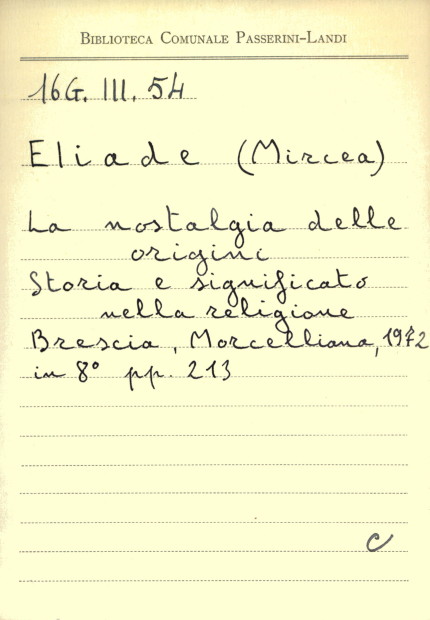 BIBLIOTECA COMUNALE PASSERINI-LANDI
16G. III. 54
Eliade (Mircea)
La nostalgia delle
origini
Storia e significato
nella religione
Brescia, Morcelliana, 1972
in 8° pp. 213
C